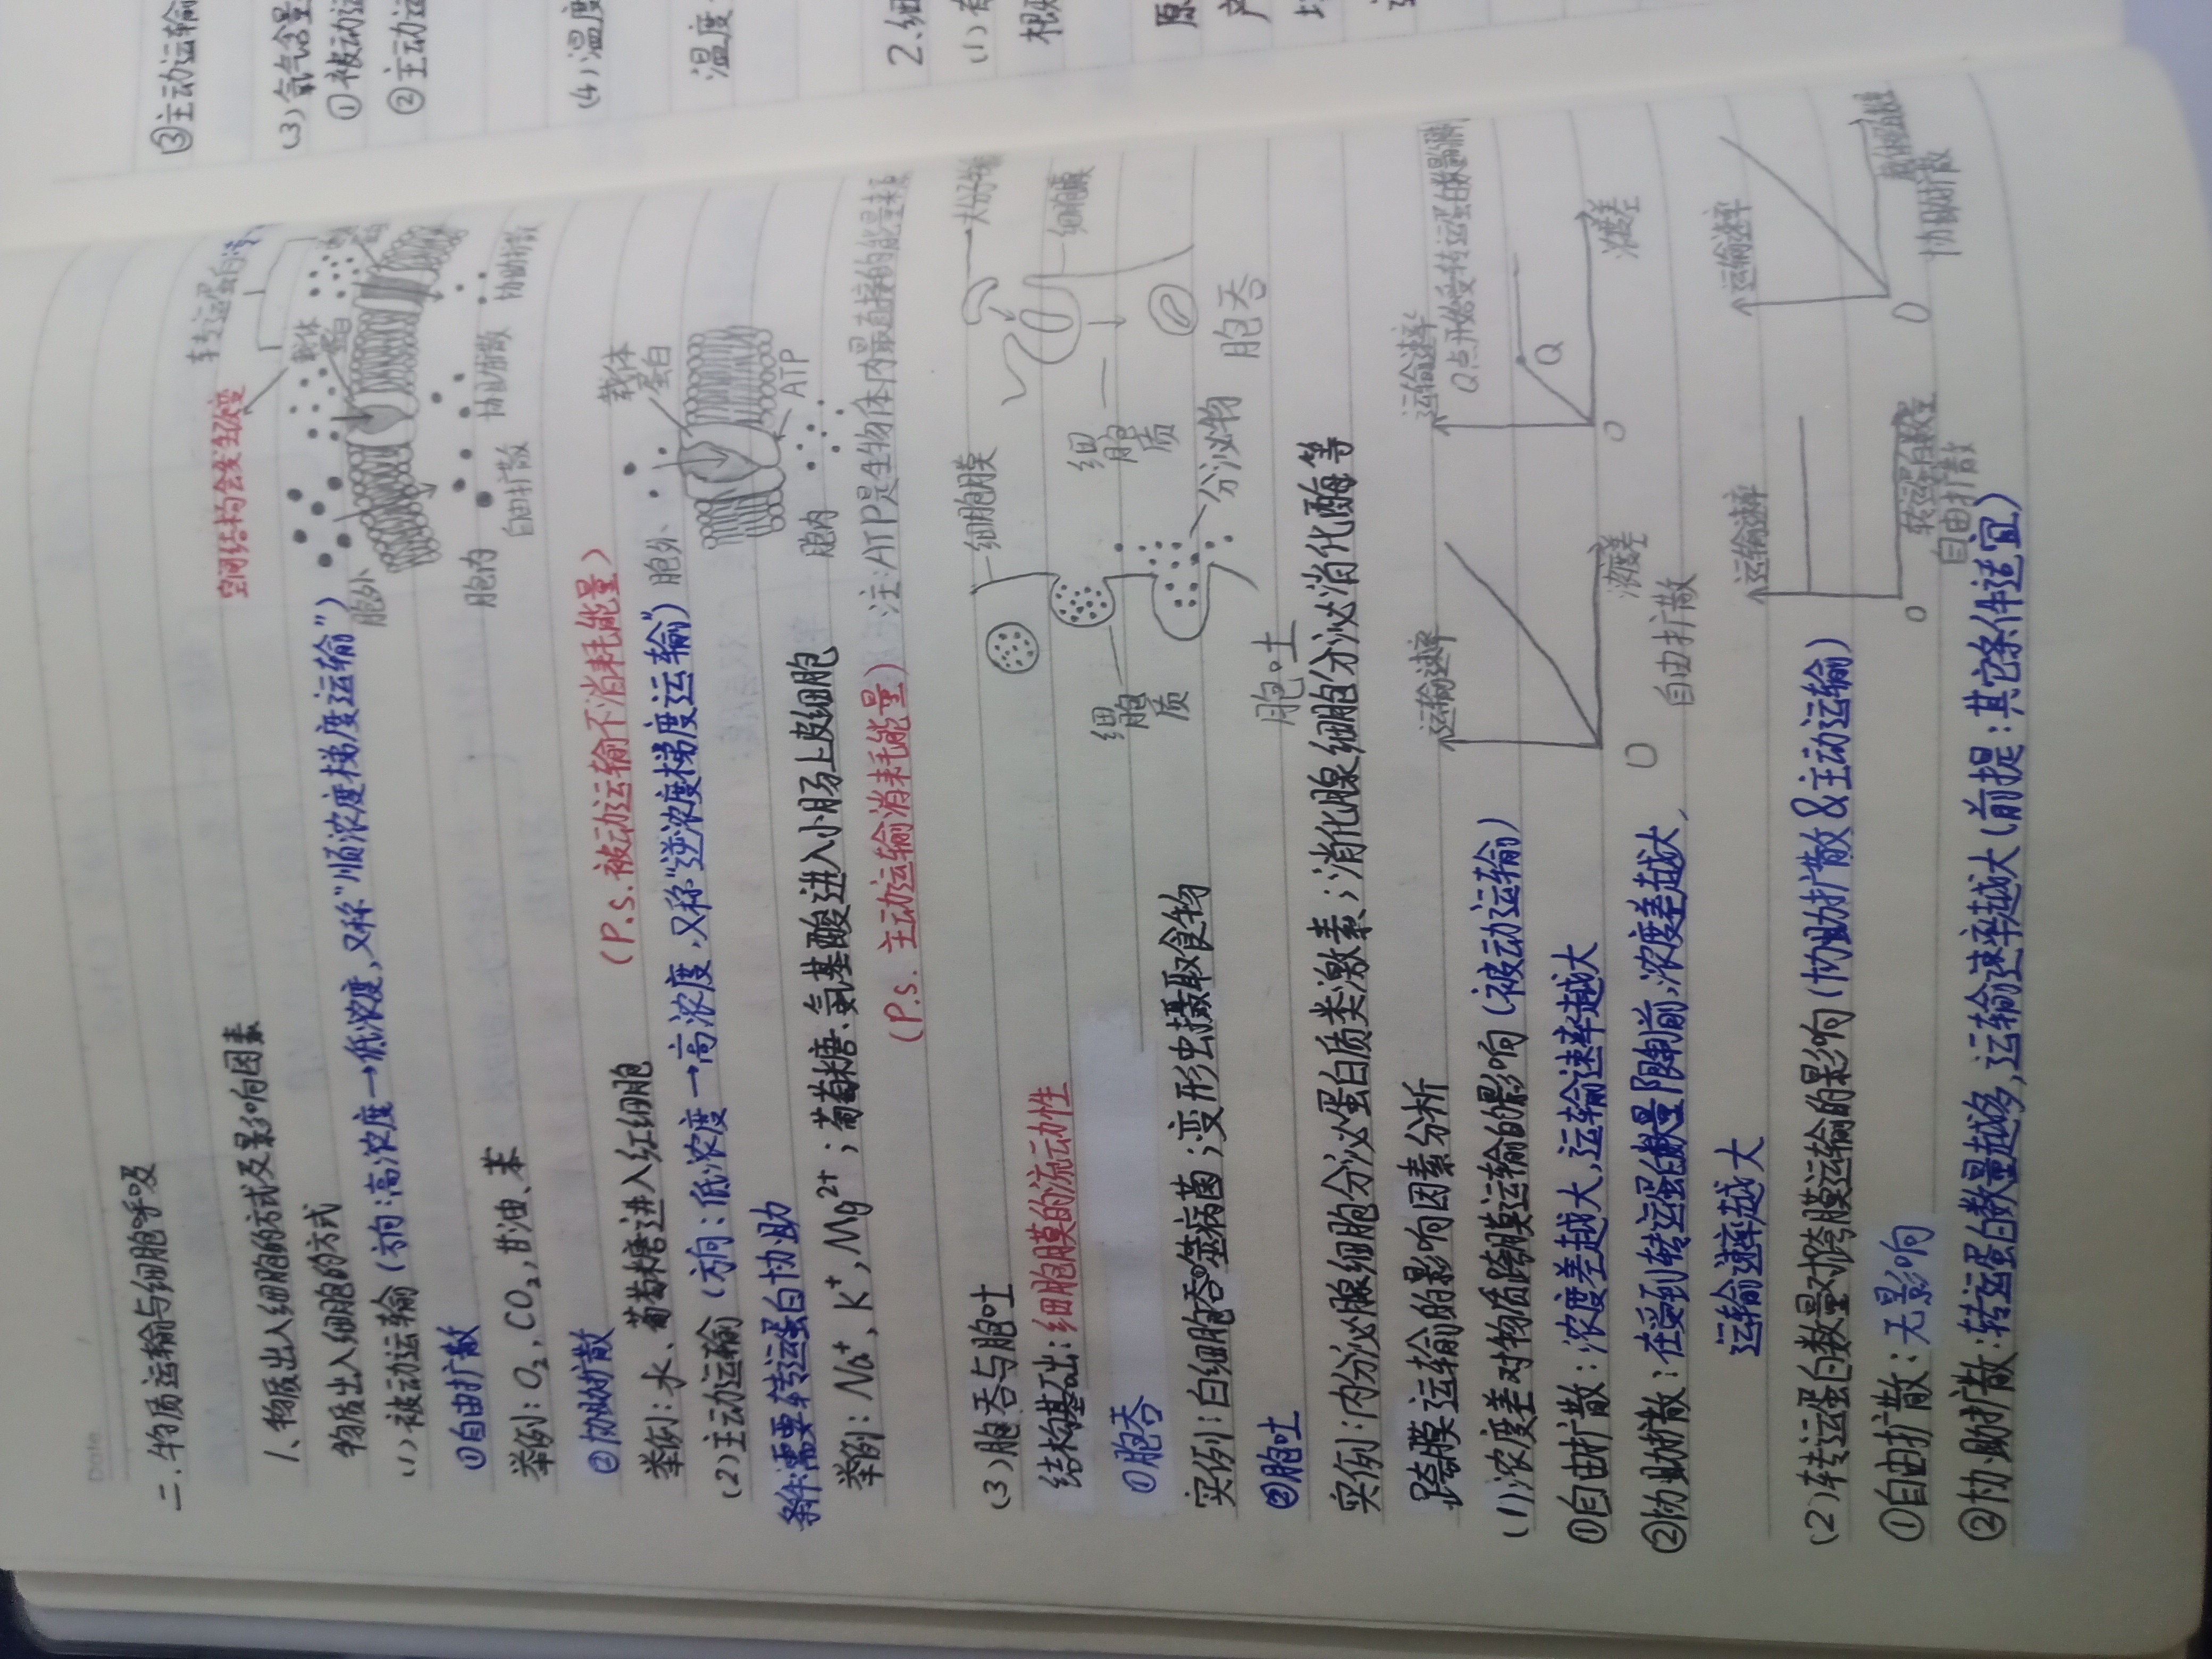 Date
二.物质运输与细胞呼吸
1、物质出入细胞的方式及影响因素
物质出入细胞的方式
空间结构会发生改变
转运蛋白
载体
蛋白
(1)被动运输(方向:高浓度→低浓度,又称"顺浓度梯度运输")
胞外
①自由扩散
胞内
举例:O₂,CO₂,甘油、苯
自由扩散 协助扩散 协助扩散
②协助扩散
(P.s.被动运输不消耗能量)
举例:水、葡萄糖进入红细胞
载体
蛋白
(2)主动运输(方向:低浓度→高浓度,又称"逆浓度梯度运输")
胞外
条件:需要转运蛋白协助
ATP
胞内
举例:Na⁺,K⁺,Mg²⁺;葡萄糖、氨基酸进入小肠上皮细胞
(P.s.主动运输消耗能量)
注:ATP是生物体内最直接的能量来源
(3)胞吞与胞吐
细胞膜
大分子物
结构基础:细胞膜的流动性
细胞膜
细胞质
细胞质
①胞吞
分泌物
实例:白细胞吞噬病菌;变形虫摄取食物
胞吞
②胞吐
胞吐
实例:内分泌腺细胞分泌蛋白质类激素;消化腺细胞分泌消化酶等
跨膜运输的影响因素分析
运输速率
运输速率
Q点开始受转运蛋白数量限制
(1)浓度差对物质跨膜运输的影响(被动运输)
Q
①自由扩散:浓度差越大,运输速率越大
O
浓度差
O
浓度差
②协助扩散:在受到转运蛋白数量限制前,浓度差越大,
自由扩散
运输速率越大
运输速率
运输速率
(2)转运蛋白数量对跨膜运输的影响(协助扩散&主动运输)
①自由扩散:无影响
O
转运蛋白数量
自由扩散
O
协助扩散
②协助扩散:转运蛋白数量越多,运输速率越大(前提:其它条件适宜)
③主动运输
(3)氧气含量
①被动运
②主动运
(4)温度
温度
2.细
(1)有
根
原
产
场